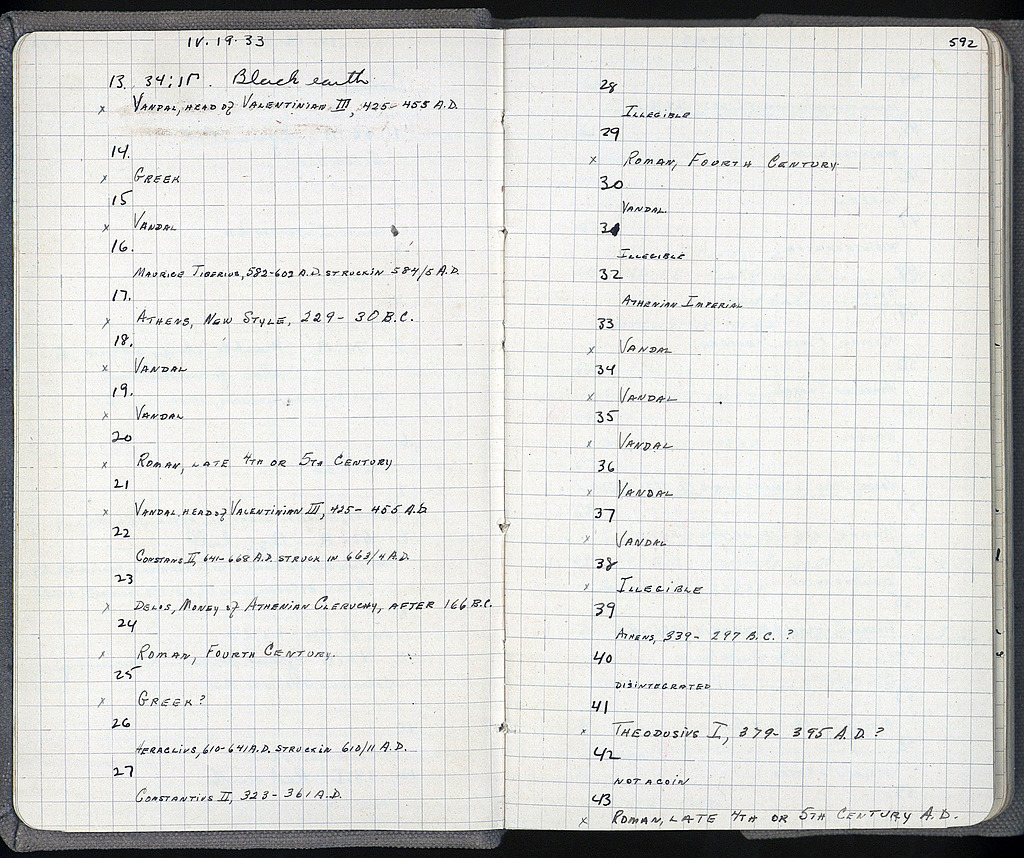 IV. 19. 33
13. 34; 1Γ. Black earth
x VANDAL, HEAD of VALENTINIAN III, 425-455 A.D.
14.
x GREEK
15
x VANDAL
16.
MAURICE TIBERIUS, 582-602 A.D. STRUCK IN 584/5 A.D.
17.
x ATHENS, NEW STYLE, 229-30 B.C.
18.
x VANDAL
19.
x VANDAL
20
x ROMAN, LATE 4TH OR 5TH CENTURY
21
x VANDAL. HEAD of VALENTINIAN III, 425-455 A.D.
22
CONSTANS II, 641-668 A.D. STRUCK IN 663/4 A.D.
23
x DELOS, MONEY of ATHENIAN CLERUCHY, AFTER 166 B.C.
24
x ROMAN, FOURTH CENTURY.
25
x GREEK?
26
HERACLIUS, 610-641 A.D. STRUCK IN 610/11 A.D.
27
CONSTANTIUS II, 323-361 A.D.
592
28
ILLEGIBLE
29
x ROMAN, FOURTH CENTURY
30
VANDAL
31
ILLEGIBLE
32
ATHENIAN IMPERIAL
33
x VANDAL
34
x VANDAL
35
x VANDAL
36
x VANDAL
37
x VANDAL
38
x ILLEGIBLE
39
ATHENS, 339-297 B.C. ?
40
DISINTEGRATED
41
x THEODOSIUS I, 379-395 A.D. ?
42
NOT A COIN
43
x ROMAN, LATE 4TH OR 5TH CENTURY A.D.